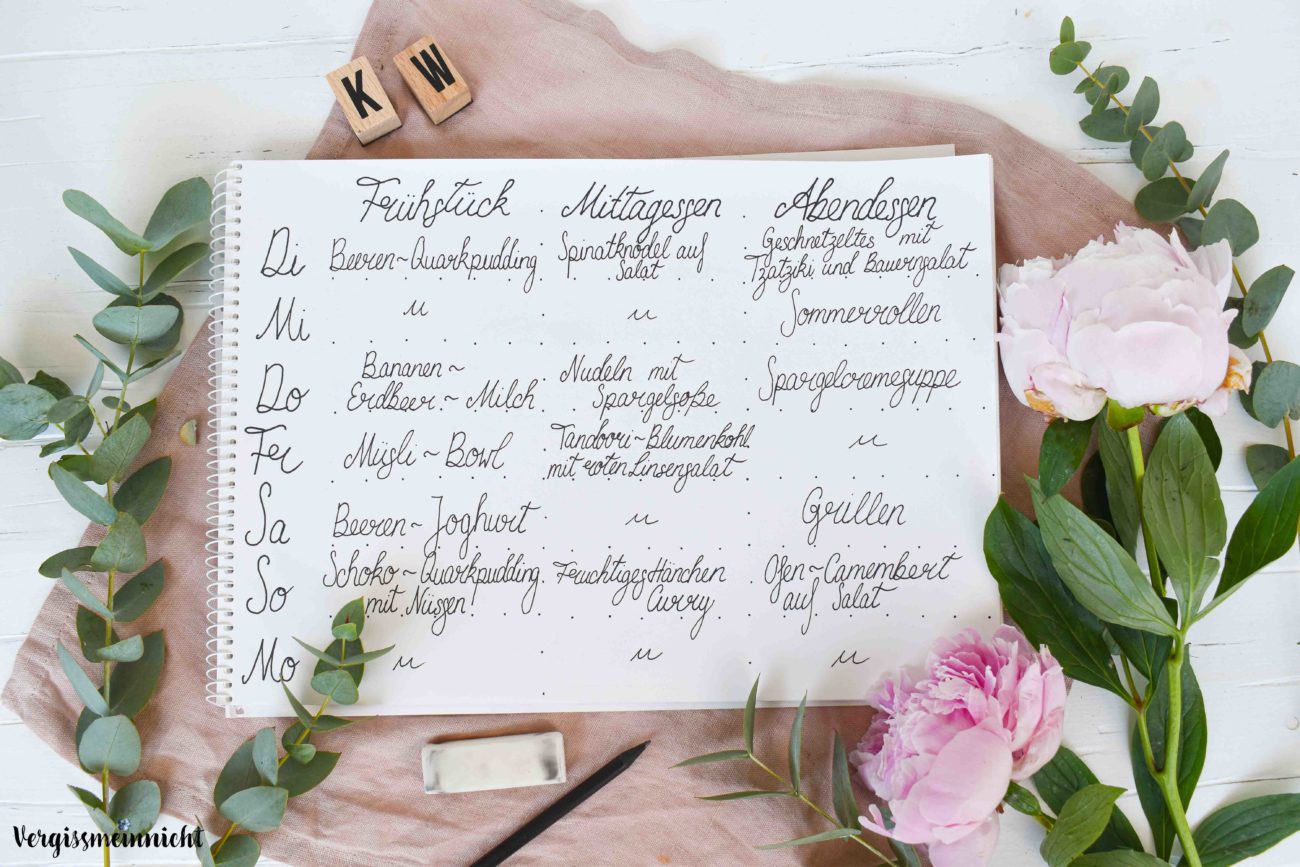 K W
Frühstück Mittagessen Abendessen
Di Beeren~Quarkpudding Spinatknödel auf Salat Geschnetzeltes mit Tzatziki und Bauernsalat
Mi " " Sommerrollen
Do Bananen~ Erdbeer~Milch Nudeln mit Spargelsoße Spargelcremesuppe
Fr Müsli~Bowl Tandoori~Blumenkohl mit roten Linsensalat "
Sa Beeren~Joghurt " Grillen
So Schoko~Quarkpudding mit Nüssen Fruchtiges Hänchen Curry Ofen~Camembert auf Salat
Mo " " "
Vergissmeinnicht